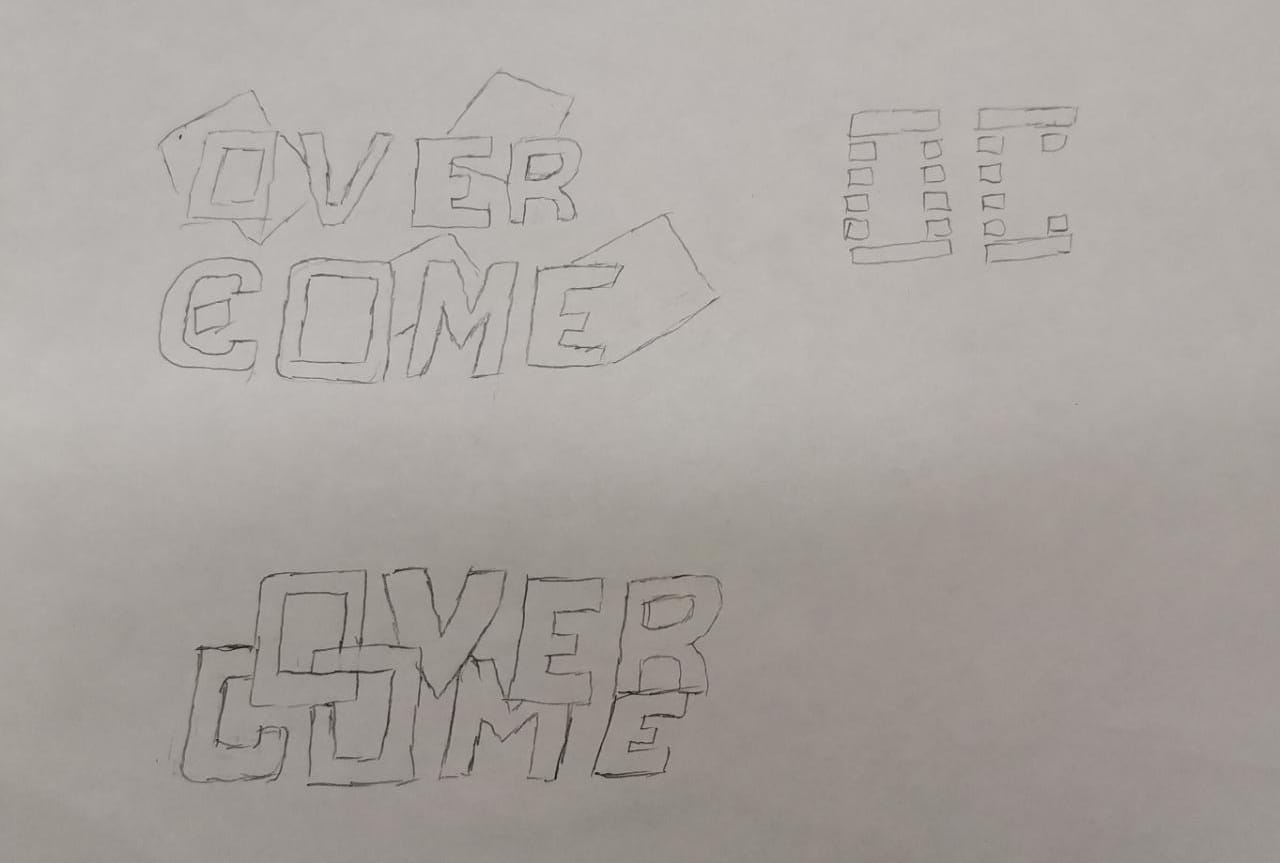 OVER
COME
OC
OVER
COME